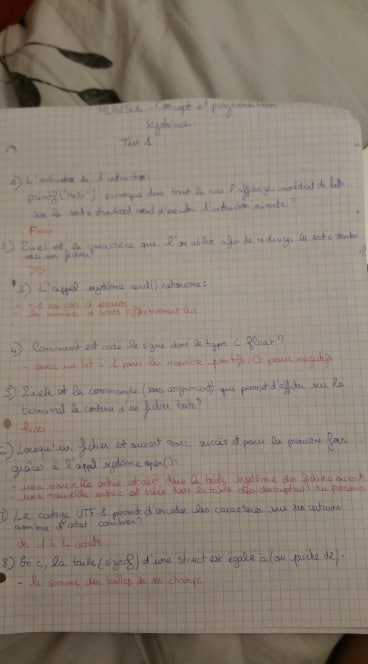 HLIN504 - Concept et programmation
Système
Test 1
1) L'exécution de l'instruction:
printf("Hello") provoque dans tout le cas l'affichage immédiat de Hello
sur la sortie standard avant d'exécuter l'instruction suivante ?
Faux
2) Quel est le caractère que l'on utilise afin de rediriger la sortie standard
vers un fichier?
>>
3) L'appel système read() retourne:
- -1 en cas d'erreur
- le nombre d'octets effectivement lus
4) Comment est codé le signe dans le type C float?
- avec un bit à 1 pour les nombres positifs, 0 pour négatifs
5) Quelle est la commande (sans argument) qui permet d'afficher sur le
terminal le contenu d'un fichier texte?
less
6) Lorsqu'un fichier est ouvert avec succès et pour la première fois
grâce à l'appel système open():
- une nouvelle entrée est créée dans la table système des fichiers ouverts
- une nouvelle entrée est créée dans la table des descripteurs du processus
7) Le codage UTF-8 permet d'encoder les caractères sur un certain
nombre d'octet combien?
de 1 à 4 octets
8) En C, la taille (sizeof) d'une struct est égale à (ou proche de).
- la somme des tailles de ses champs